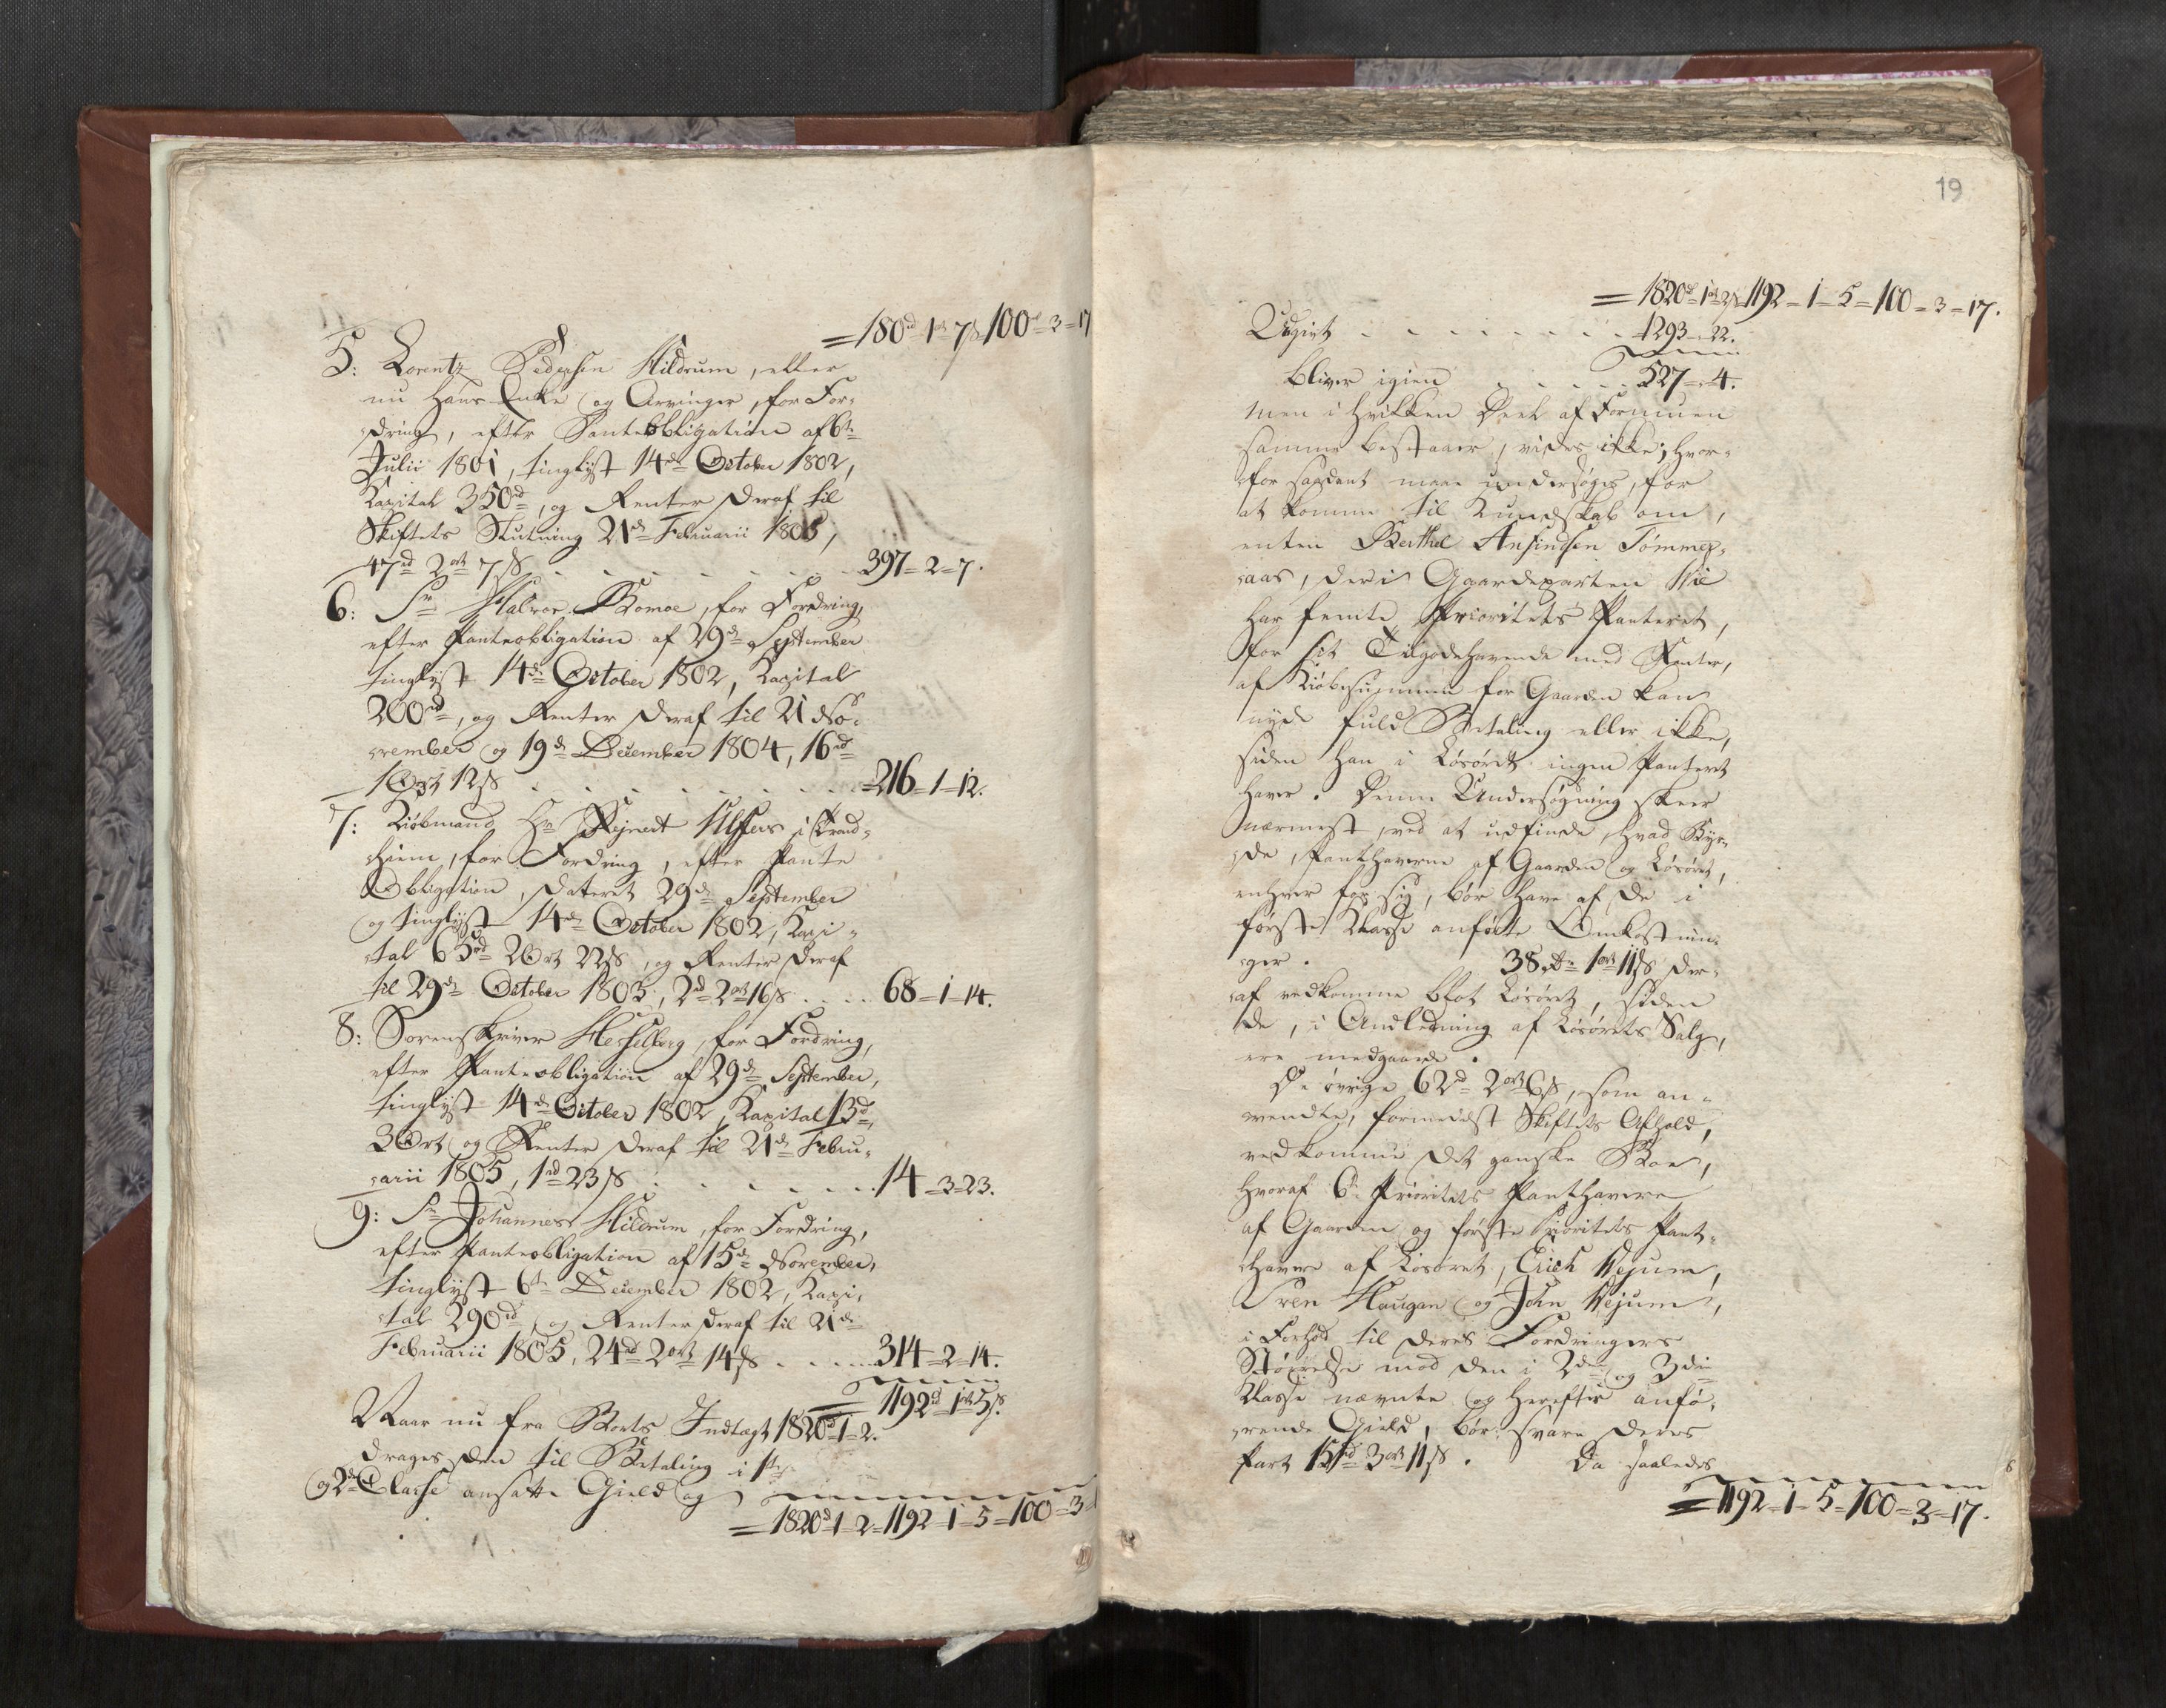 = 180rd 1ort 7ß 100rd = 3 = 17
5: Lorentz Pedersen Hildrum, eller
nu hans Enke og Arvinger, for For-
dring, efter Panteobligation af 6te
Julii 1801, tinglyst 14de October 1802,
Kapital 350rd, og Renter deraf til
Skiftets Slutning 21de Februarii 1805,
47rd 2ort 7ß . . . . . . . 397 = 2 = 7.
6: Sr Halvor Romoe, for Fordring,
efter Panteobligation af 29de September
tinglyst 14de October 1802, Kapital
200rd, og Renter deraf til 21 No-
vember og 19de December 1804, 16rd
1 Ort 12ß . . . . . . . = 216 = 1 = 12.
7: Kiøbmand Hr Rejnert i Trond-
hiem, for Fordring, efter Pante
Obligation, dateret 29de September
og tinglyst 14de October 1802, Kapi-
tal 65rd 2 Ort 22ß, og Renter deraf
til 29de October 1803, 2rd 2ort 16ß . . . . 68 = 1 = 14.
8: Sorenskriver Hesselberg, for Fordring,
efter Panteobligation af 29de September,
tinglyst 14de October 1802, Kapital 13rd,
3 Ort og Renter deraf til 21de Febru-
arii 1805, 1rd 23ß . . . . . . . 14 = 3 = 23.
9: Sr Johannes Hildrum, for Fordring,
efter Panteobligation af 15de November,
tinglyst 6te December 1802, Kapi-
tal 290rd, og Renter deraf til 21de
Februarii 1805, 24rd 2ort 14ß . . . . . 314 = 2 = 14.
= 1192rd 1ort 5ß.
Naar nu fra Boets Indtægt 1820rd 1 = 2.
drages den til Betaling i 1te
og 2de Classe ansatte Gield og
= 1820rd 1 = 2 = 1192 = 1 = 5 = 100 = 3
19
= 1820rd = 1ort 2ß 1192 = 1 = 5 = 100 = 3 = 17.
Udgivt . . . . . . . . 1293 = 22.
bliver igien . . . . . 527 = 4.
men i hvilken Deel af Formuen
samme bestaaer, vides ikke; hvor-
for saadant maae undersøges, for
at komme til Kundskab om,
enten Berthel Ansindsen Tømmer-
aas, der i Gaardeparten
har femte Prioritets Panteret,
for sit Tilgodehavende med Renter,
af Kiøbesummen for Gaarden kan
nyde fuld Betaling eller ikke,
siden han i Løsøret ingen Panteret
haver. Denne Undersøgning skeer
nærmest, ved at udfinde, hvad Byr-
de, Panthaverne af Gaarden og Løsøret,
enhver for sig, bør have af de i
første Klasse anførte Omkostnin-
ger. 38 rd 1ort 11ß der-
af vedkomme blot Løsøret, siden
de, i Andledning af Løsørets Salg,
ere medgaaede.
De øvrige 62rd 2ort 6ß, som an-
vendte, formedelst Skiftets Afhold,
vedkomme det ganske Boe,
hvoraf 6te Prioritets Panthavere
af Gaarden og første Prioritets Pant-
havere af Løsøret, Erich Vejum,
Sren Haugan og John Vejum,
i Forhold til deres Fordringers
Størrelse mod den i 2den og 3die
Klasse nævnte og herefter anfø-
rende Gield, bør svare deres
Part 15rd 3ort 11ß. Da saaledes
= 1192 = 1 = 5 = 100 = 3 = 17.